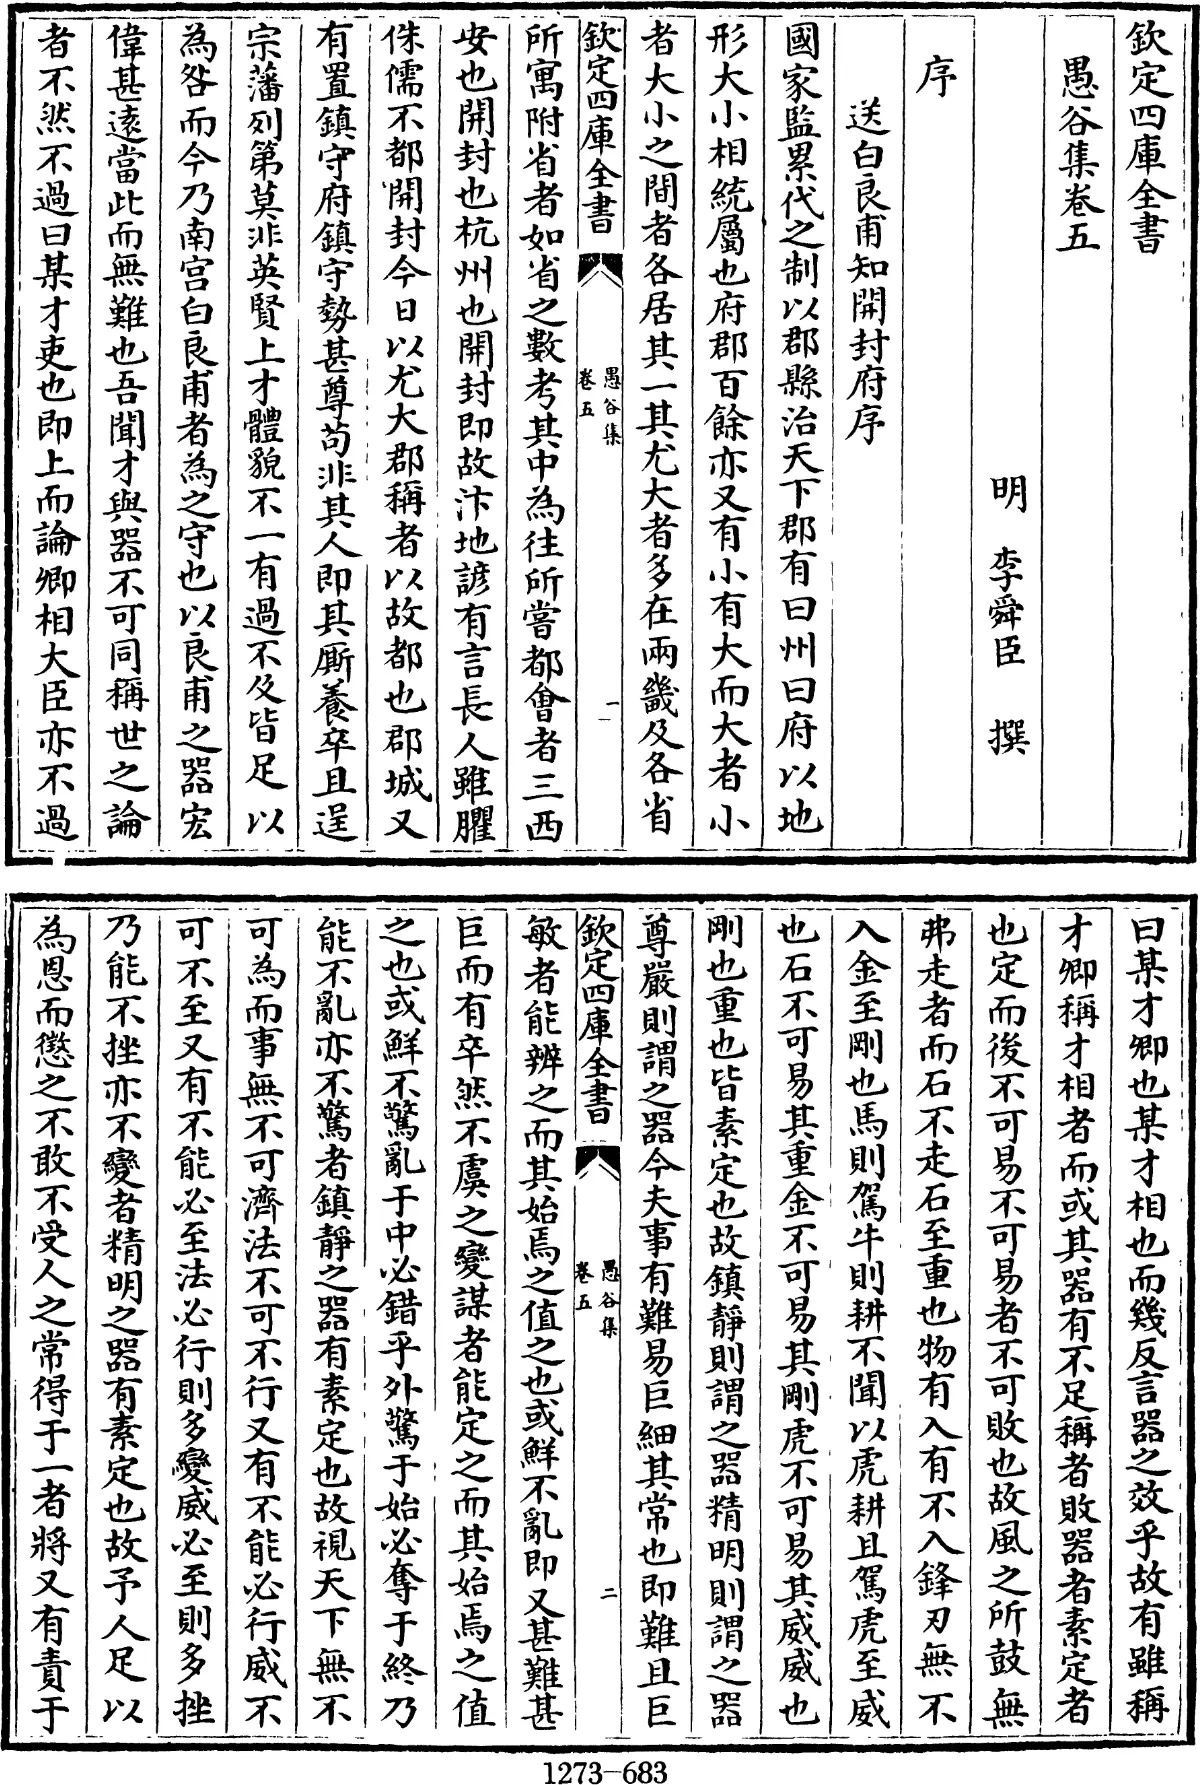 欽定四庫全書
愚谷集卷五
明 李舜臣 撰
序
送白良甫知開封府序
國家監累代之制以郡縣治天下郡有曰州曰府以地
形大小相統屬也府郡百餘亦又有小有大而大者小
者大小之間者各居其一其尤大者多在兩畿及各省
欽定四庫全書
愚谷集
卷五
一
所寓附省者如省之數考其中為往所嘗都會者三西
安也開封也杭州也開封即故汴地諺有言長人雖臞
侏儒不都開封今日以尤大郡稱者以故都也郡城又
有置鎮守府鎮守勢甚尊苟非其人即其廝養卒且逞
宗藩列第莫非英賢上才體貌不一有過不及皆足以
為咎而今乃南宮白良甫者為之守也以良甫之器宏
偉甚逺當此而無難也吾聞才與器不可同稱世之論
者不然不過曰某才吏也即上而論卿相大臣亦不過
曰某才卿也某才相也而幾反言器之效乎故有雖稱
才卿稱才相者而或其器有不足稱者敗器者素定者
也定而後不可易不可易者不可敗也故風之所鼓無
弗走者而石不走石至重也物有入有不入鋒刃無不
入金至剛也馬則駕牛則耕不聞以虎耕且駕虎至威
也石不可易其重金不可易其剛虎不可易其威威也
剛也重也皆素定也故鎮靜則謂之器精明則謂之器
尊嚴則謂之器今夫事有難易巨細其常也即難且巨
欽定四庫全書
愚谷集
卷五
二
敏者能辨之而其始焉之值之也或鮮不亂即又甚難甚
巨而有卒然不虞之變謀者能定之而其始焉之值
之也或鮮不驚亂于中必錯乎外驚于始必奪于終乃
能不亂亦不驚者鎮靜之器有素定也故視天下無不
可為而事無不可濟法不可不行又有不能必行威不
可不至又有不能必至法必行則多變威必至則多挫
乃能不挫亦不變者精明之器有素定也故予人足以
為恩而懲之不敢不受人之常得于一者將又有責于
1273—683